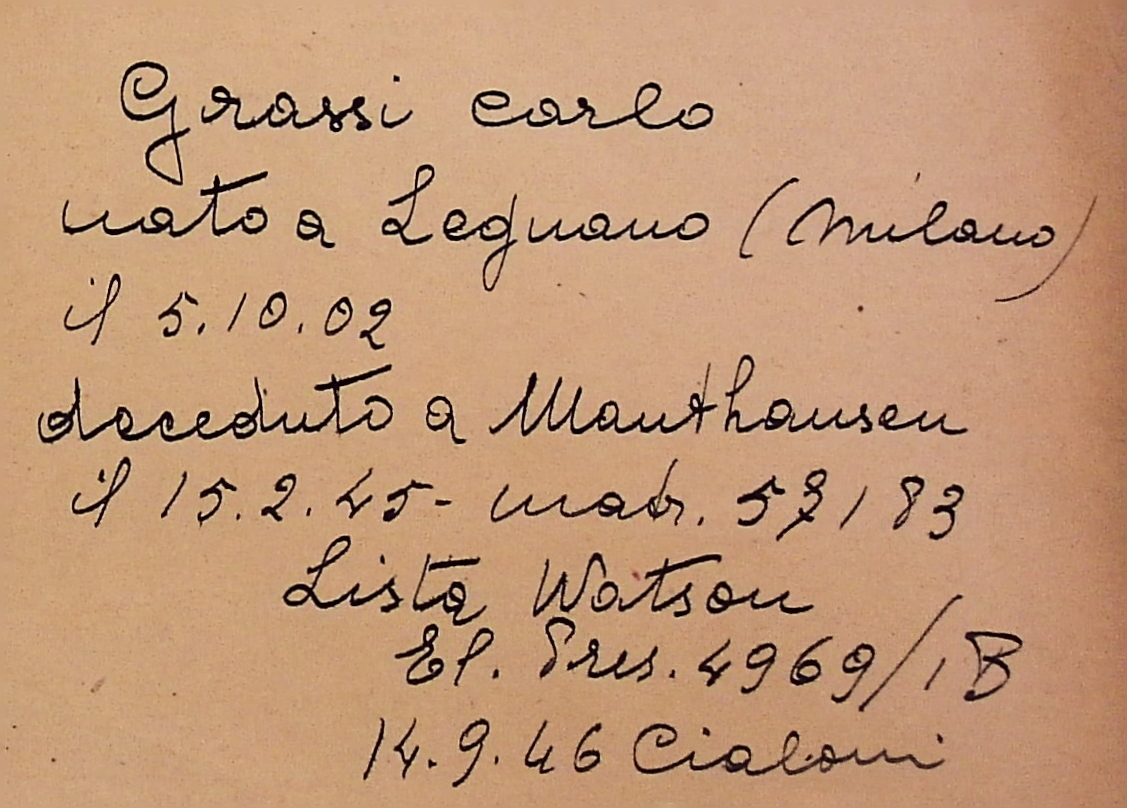 Grassi Carlo
nato a Legnano (Milano)
il 5.10.02
deceduto a Mauthausen
il 15.2.45- matr. 57183
Lista Watson
El. Pres. 4969/1B
14.9.46 Cialoni